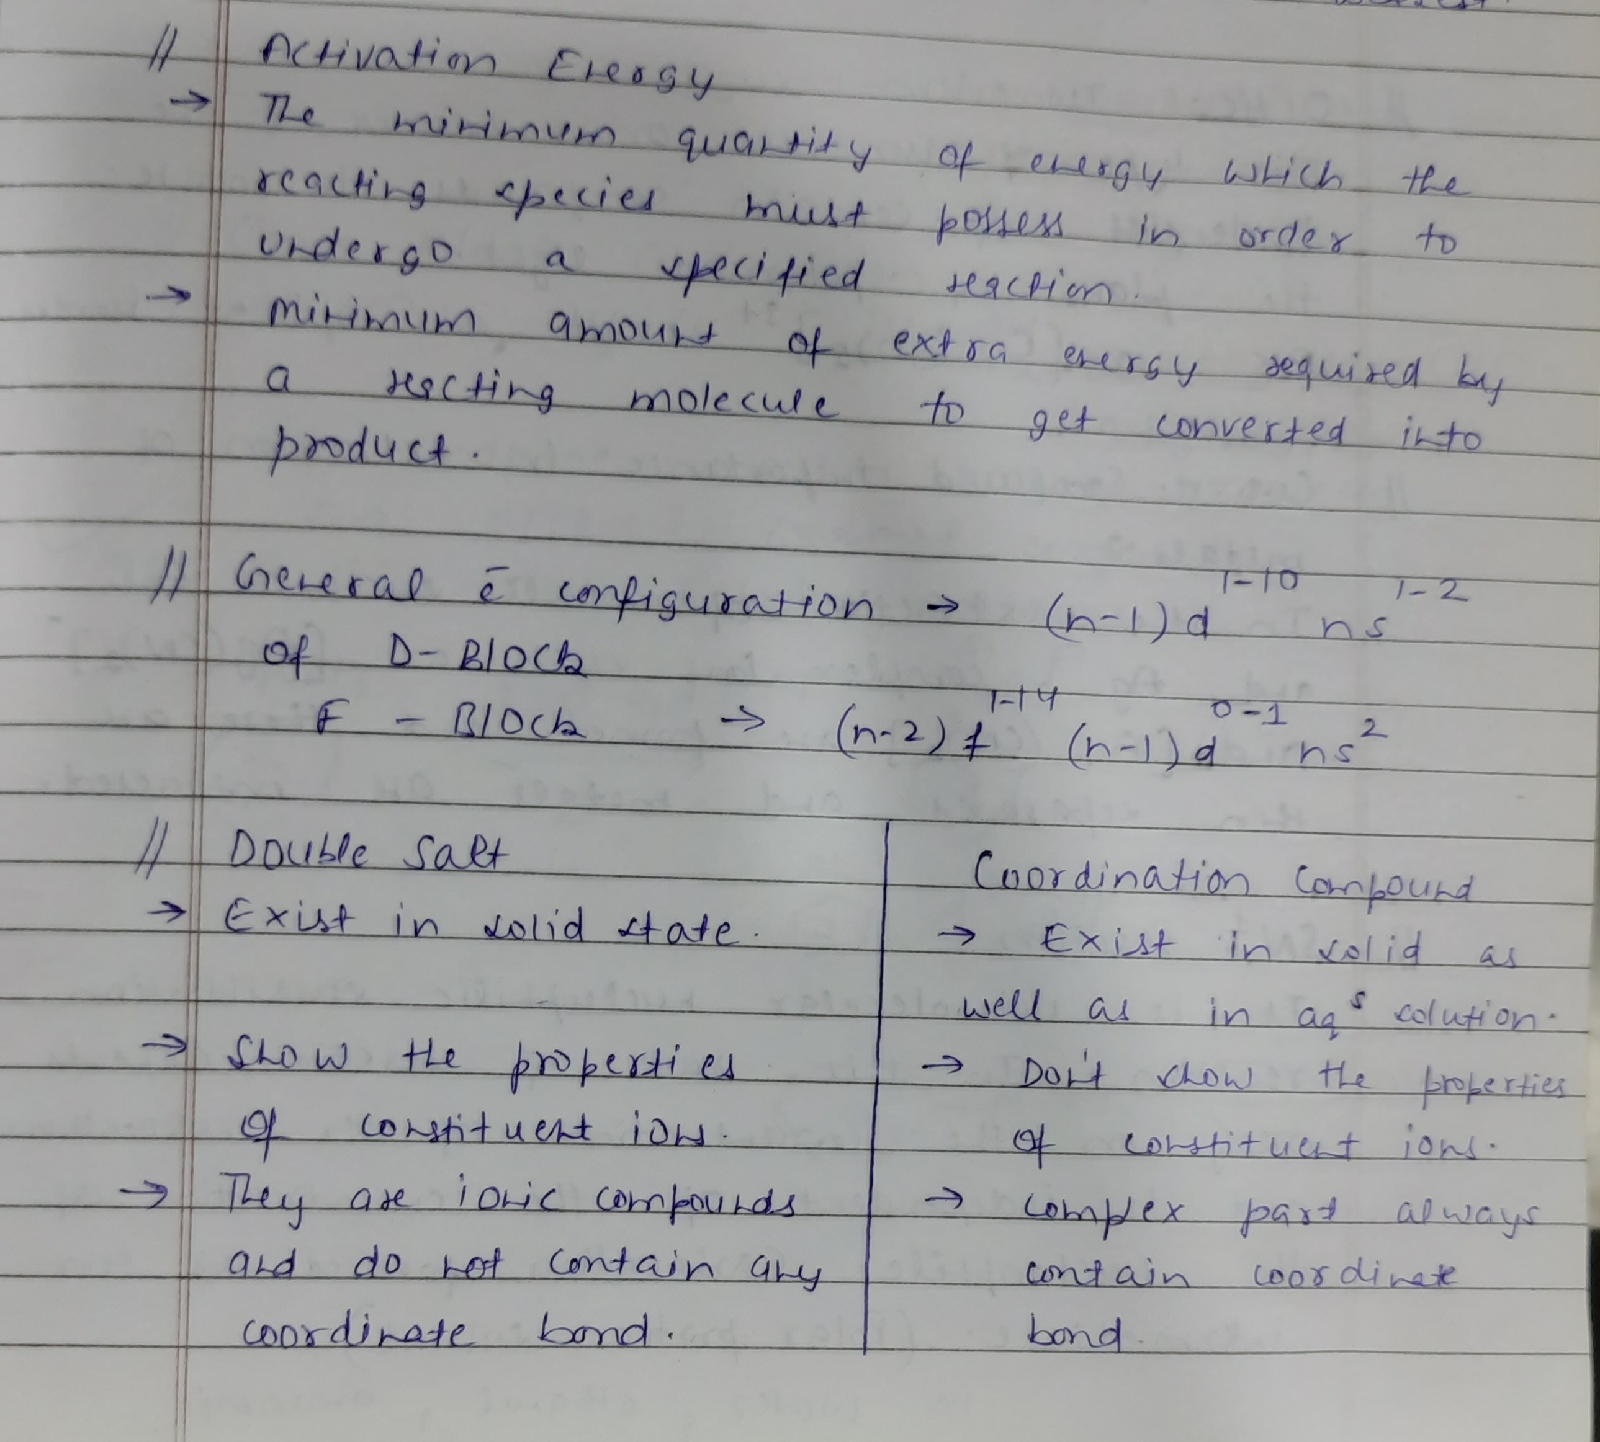 // Activation Energy
→ The minimum quantity of energy which the
reacting species must possess in order to
undergo a specified reaction.
→ minimum amount of extra energy required by
a reacting molecule to get converted into
product.
// General ē configuration → (n-1)d¹⁻¹⁰ ns¹⁻²
of D-Block
F - Block → (n-2)f¹⁻¹⁴ (n-1)d⁰⁻¹ ns²
// Double Salt
→ Exist in solid state.
→ Show the properties
of constituent ions.
→ They are ionic compounds
and do not contain any
coordinate bond.
Coordination Compound
→ Exist in solid as
well as in aqˢ solution.
→ Don't show the properties
of constituent ions.
→ Complex part always
contain coordinate
bond.